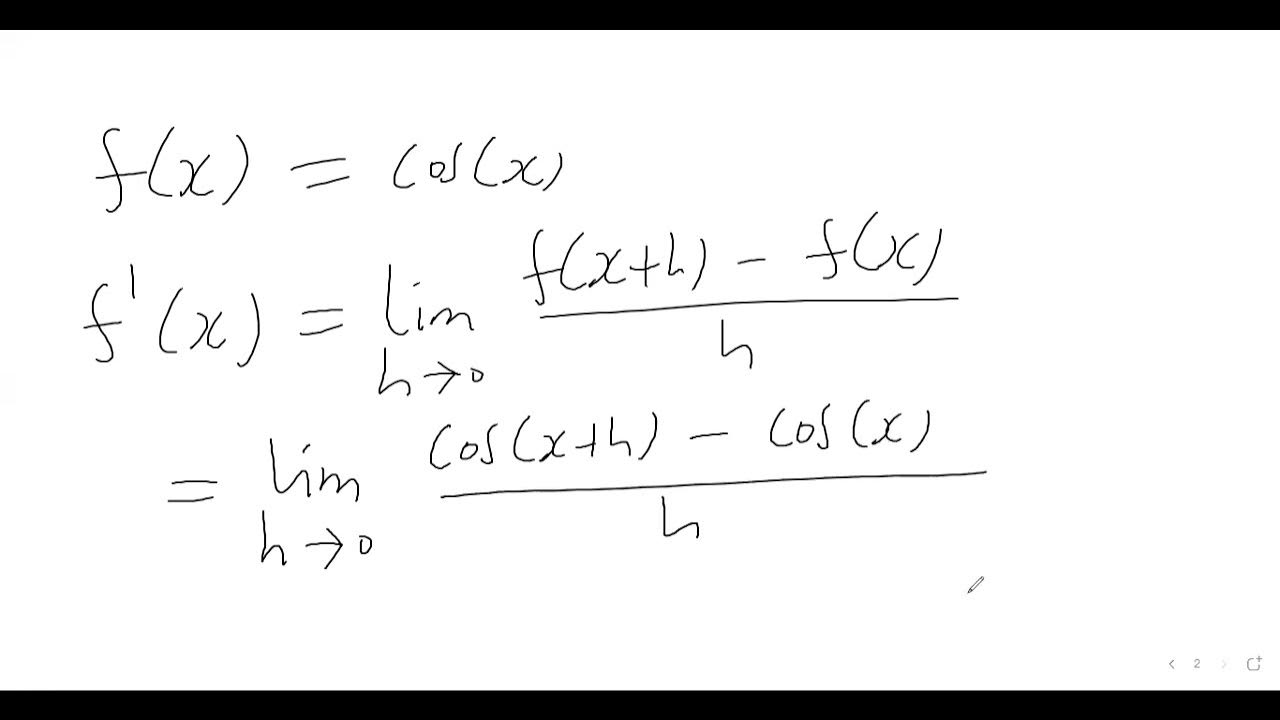 f(x) = cos(x)
f'(x) = lim h→0 f(x+h) - f(x) / h
= lim h→0 cos(x+h) - cos(x) / h
< 2 >